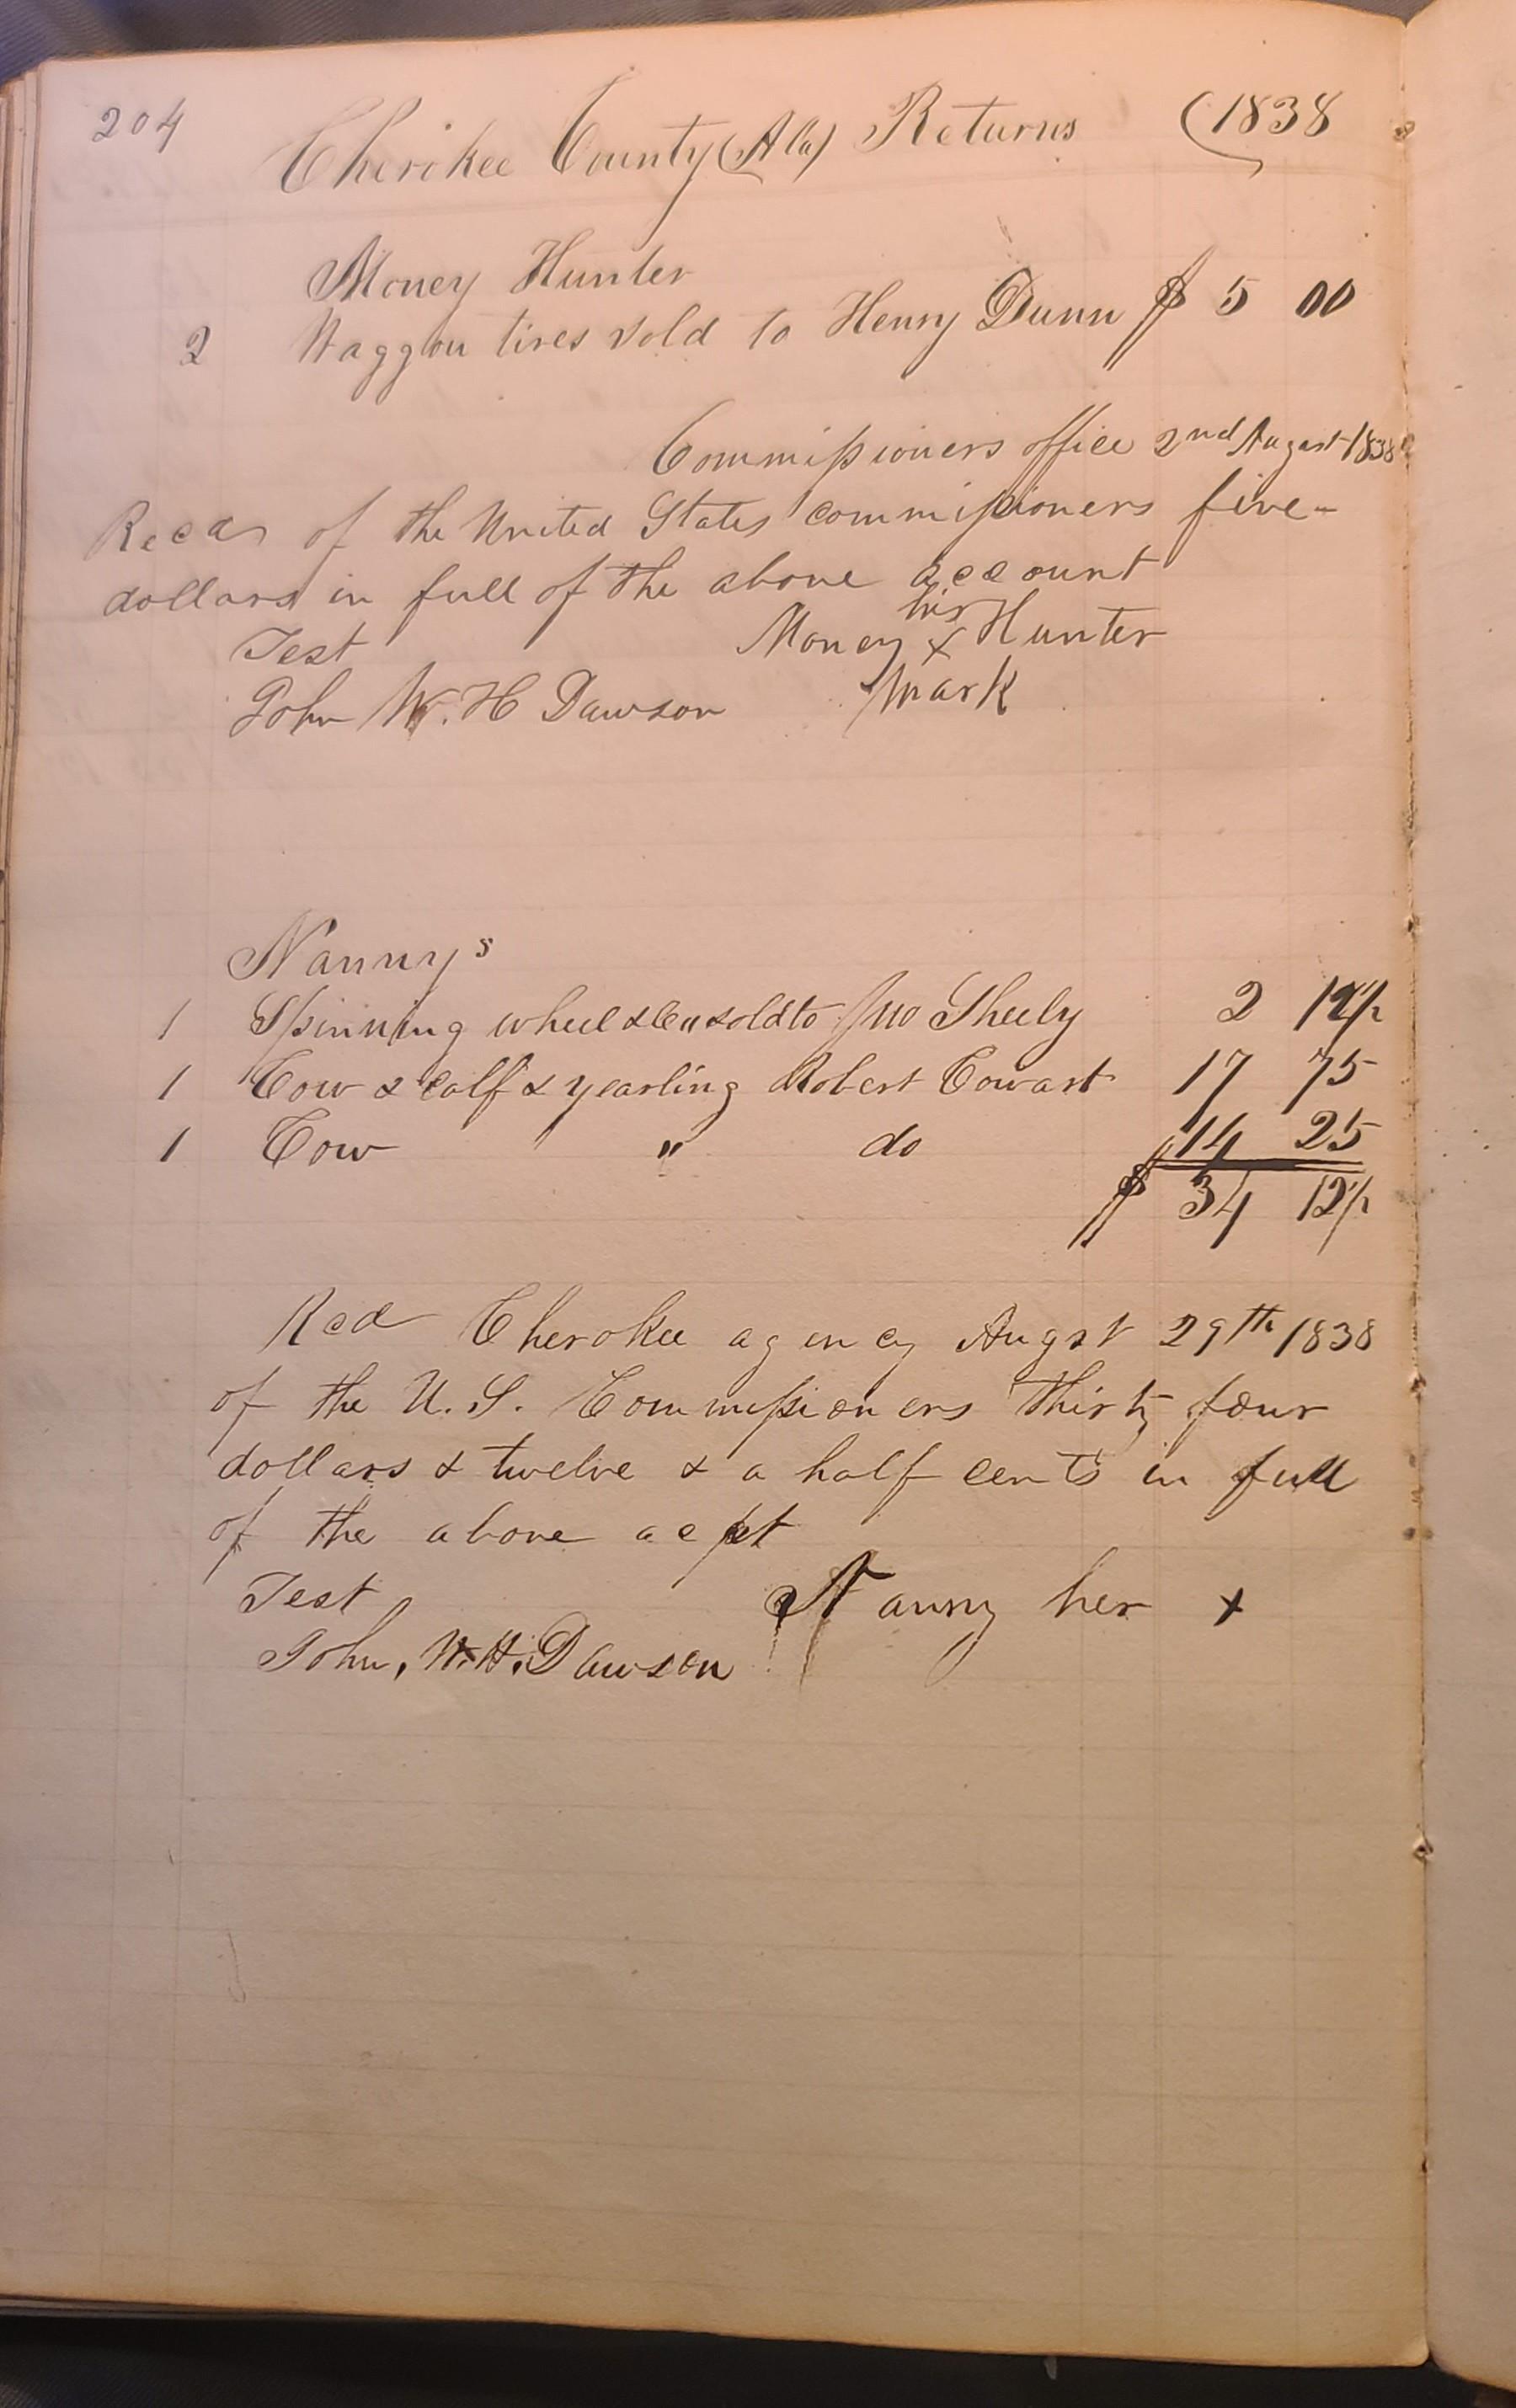 204 Cherikee County (Ala) Returns (1838
Money Hunter
2 Waggon tires sold to Henry Dunn $ 5 00
Commissioners office 2nd August 1838
Recd of the United States commissioners five
dollars in full of the above account
his
Test Money x Hunter
John W. H Dawson mark
Nannys
1 Spinning wheel &c " sold to Jno Sheely 2 12½
1 Cow & calf & yearling Robert Cowart 17 75
1 Cow " do 14 25
$ 34 12½
Recd Cherokee agency Augst 29th 1838
of the U. S. Commissioners thirty four
dollars & twelve & a half cents in full
of the above acpt
Test Nanny her x
John, W. H. Dawson